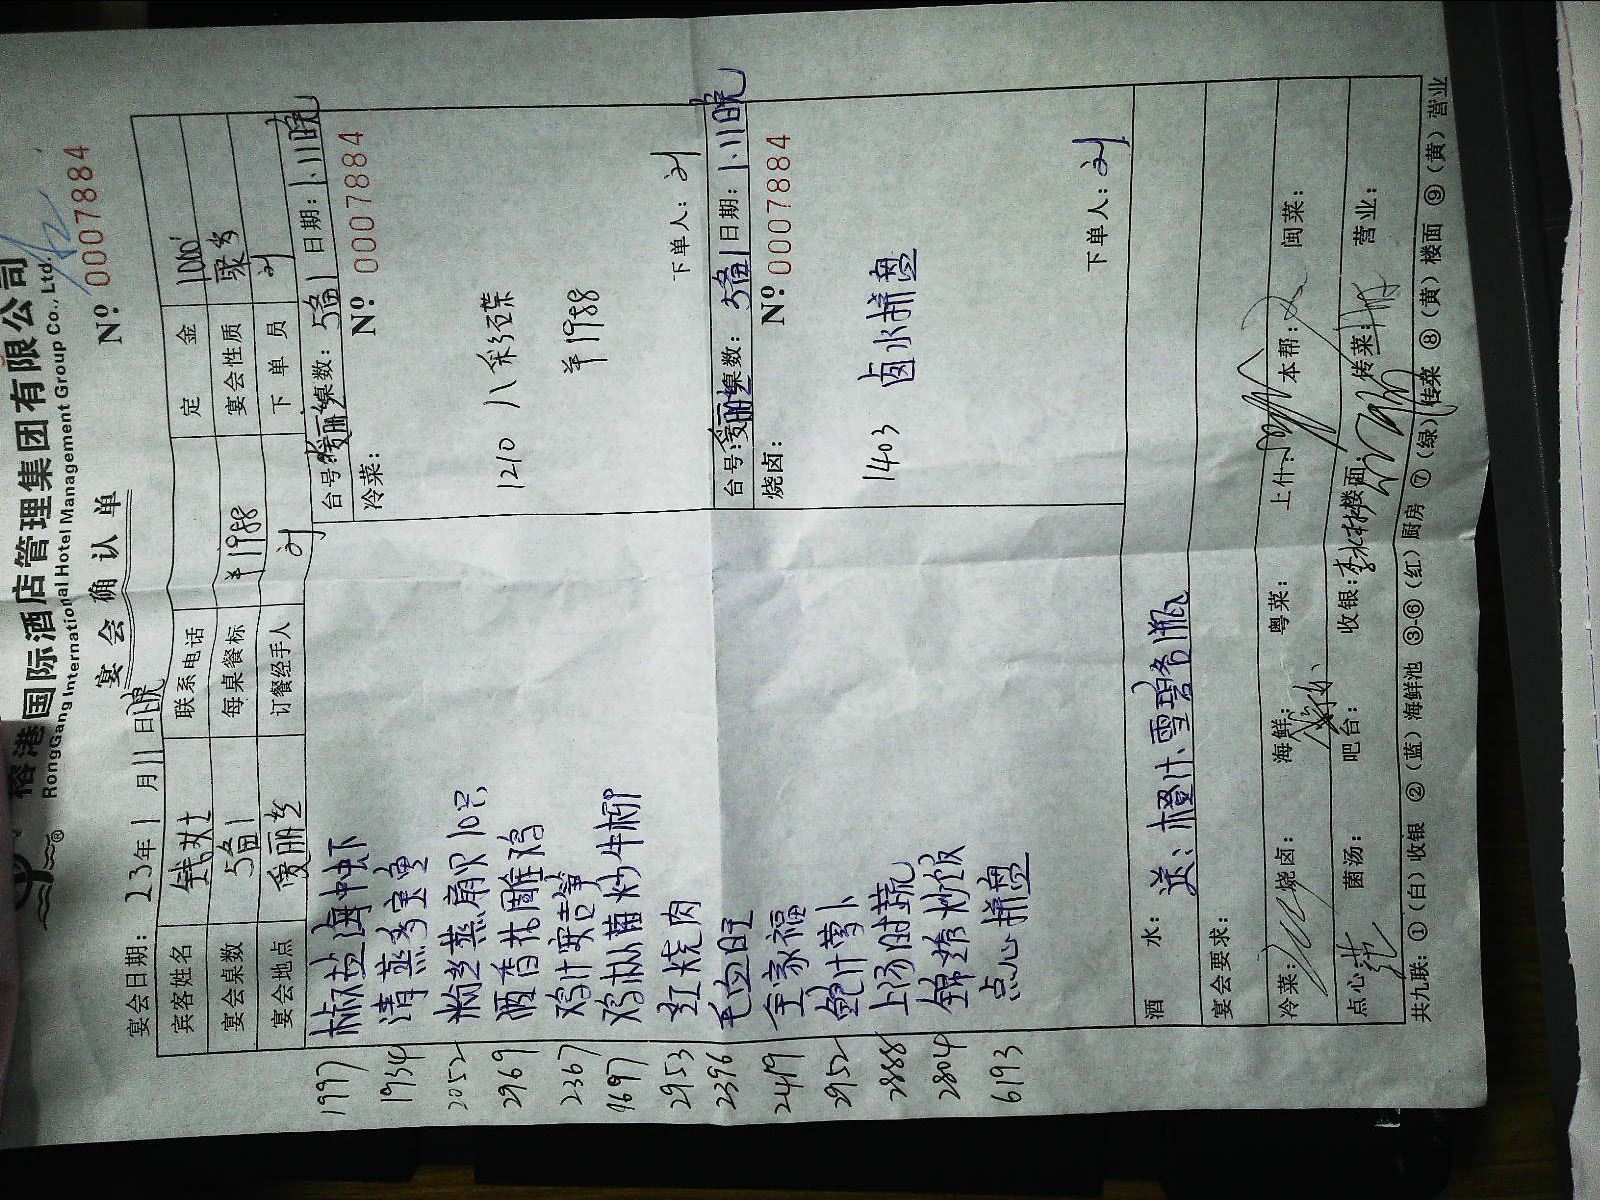 榕港国际酒店管理集团有限公司
RongGang International Hotel Management Group Co., Ltd.
宴会确认单
Nº 0007884
宴会日期: 23年1月11日晚
宾客姓名 钱女士 联系电话 定金 1000
宴会桌数 5备1 每桌餐标 ¥1988 宴会性质 聚会
宴会地点 爱丽丝 订餐经手人 刘 下单员 刘
1997 椒盐海中虾
1934 清蒸多宝鱼
2052 粉丝蒸扇贝10只
2969 酒香花雕鸡
2367 鸡汁安吉笋
9697 鸡枞菌炒牛柳
2953 红烧肉
2396 毛血旺
2419 全家福
2952 鲍汁萝卜
2888 上汤时蔬
2804 锦绣炒饭
6193 点心拼盘
台号: 爱丽丝 桌数: 5备1 日期: 1.11晚
冷菜: Nº 0007884
1210 八彩碟
¥1988
下单人: 刘
台号: 爱丽丝 桌数: 5备1 日期: 1.11晚
烧卤: Nº 0007884
1403 卤水拼盘
下单人: 刘
酒水: 送: 橙汁、雪碧各1瓶
宴会要求:
冷菜: 烧卤: 海鲜: 粤菜: 上什: 本帮: 闽菜:
点心: 菌汤: 吧台: 收银: 楼面: 传菜: 营业:
共九联: ①(白)收银 ②(蓝)海鲜池 ③-⑥(红)厨房 ⑦(绿)传菜 ⑧(黄)楼面 ⑨(黄)营业